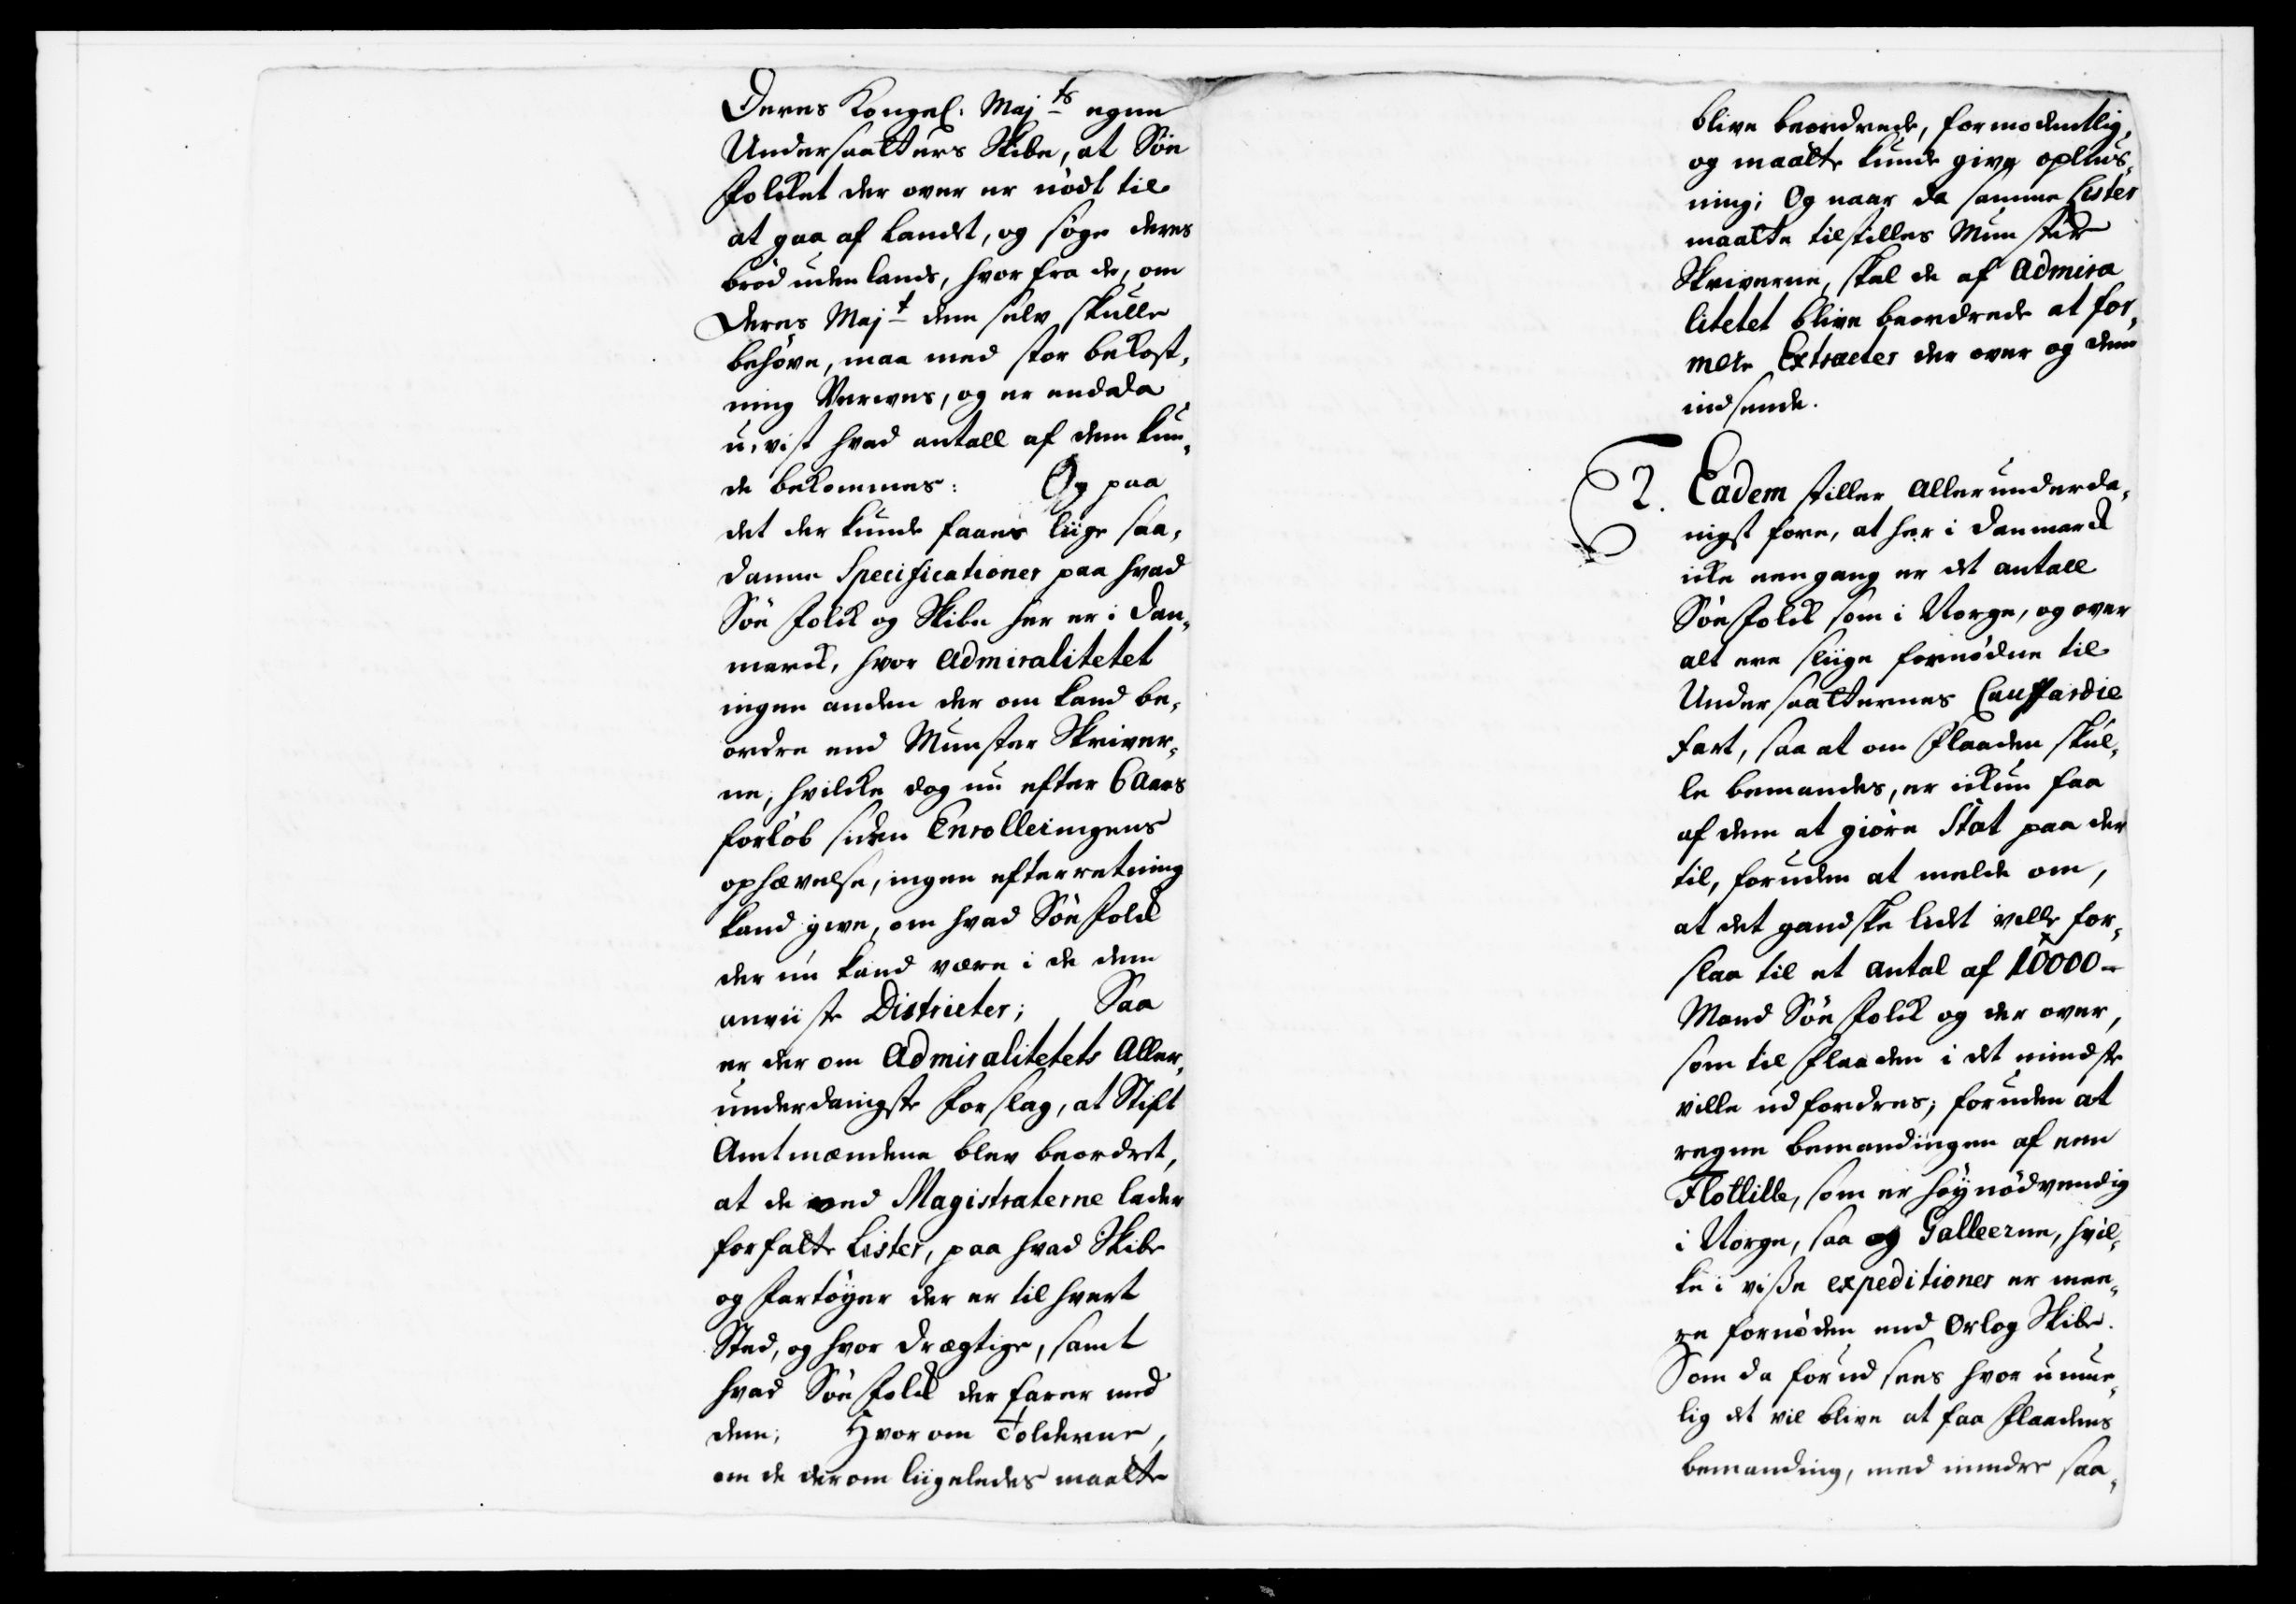 Deres Kongel: Maj.ts egne
Undersaatters Skibe, at Söe
Folcket der over er nödt til
at gaa af Landet, og söge deres
bröd uden lands, hvor fra de, om
Deres Maj.t dem selv skulle
behöve, maa med stor bekost,
ning Verves, og er endda
u,vist hvad antall af dem kun,
de bekommes: Og paa
det der kunde faaes liige saa,
danne Specificationer paa hvad
Söe Folck og Skibe her er i Dan,
marck, hvor Admiralitetet
ingen anden der om kand be,
ordre end Munster Skriver,
ne, hvilcke dog nu efter 6 Aars
forlöb siden Enrolleringens
ophævelse, ingen efterretning
kand give, om hvad Söe Folck
der nu kand være i de dem
anviiste Districter; Saa
er der om Admiralitetets Aller,
underdanigste Forslag, at Stift
Amtmændene blev beordret,
at de ved Magistraterne lader
forfatte Lister, paa hvad Skibe
og Fartöyer der er til hvert
Sted, og hvor drægtige, samt
hvad Söe Folck der farer med
dem; Hvor om Tolderne,
om de derom liigeledes maatte
blive beordrede, formodentlig,
og maatte kunde give oplius,
ning; Og naar da samme Lister
maatte tilstilles Munster
Skriverne, skal de af Admira
litetet blive beordrede at for,
mere Extracter der over og dem
indsende.
2. Eadem stiller Allerunderda,
nigst fore, at her i Danmarck
icke eengang er det antall
Söe Folck som i Norge, og over
alt ere sliige fornödne til
Undersaatternes Cauffardie
fart, saa at om Flaaden skul,
le bemandes, er ickun faa
af dem at giöre Stat paa der
til, foruden at melde om,
at det gandske lidet ville for,
slaa til et antal af 10000
Mand Söe Folck og der over,
som til Flaaden i det mindste
ville udfordres; foruden at
regne bemandingen af een
Flotille, som er höynödvendig
i Norge, saa og Galleerne, hvil,
ke i viße expeditioner er mee,
re fornöden end Orlog Skibe.
Som da forud sees hvor umue,
lig det vil blive at faa Flaadens
bemanding, med mindre saa,